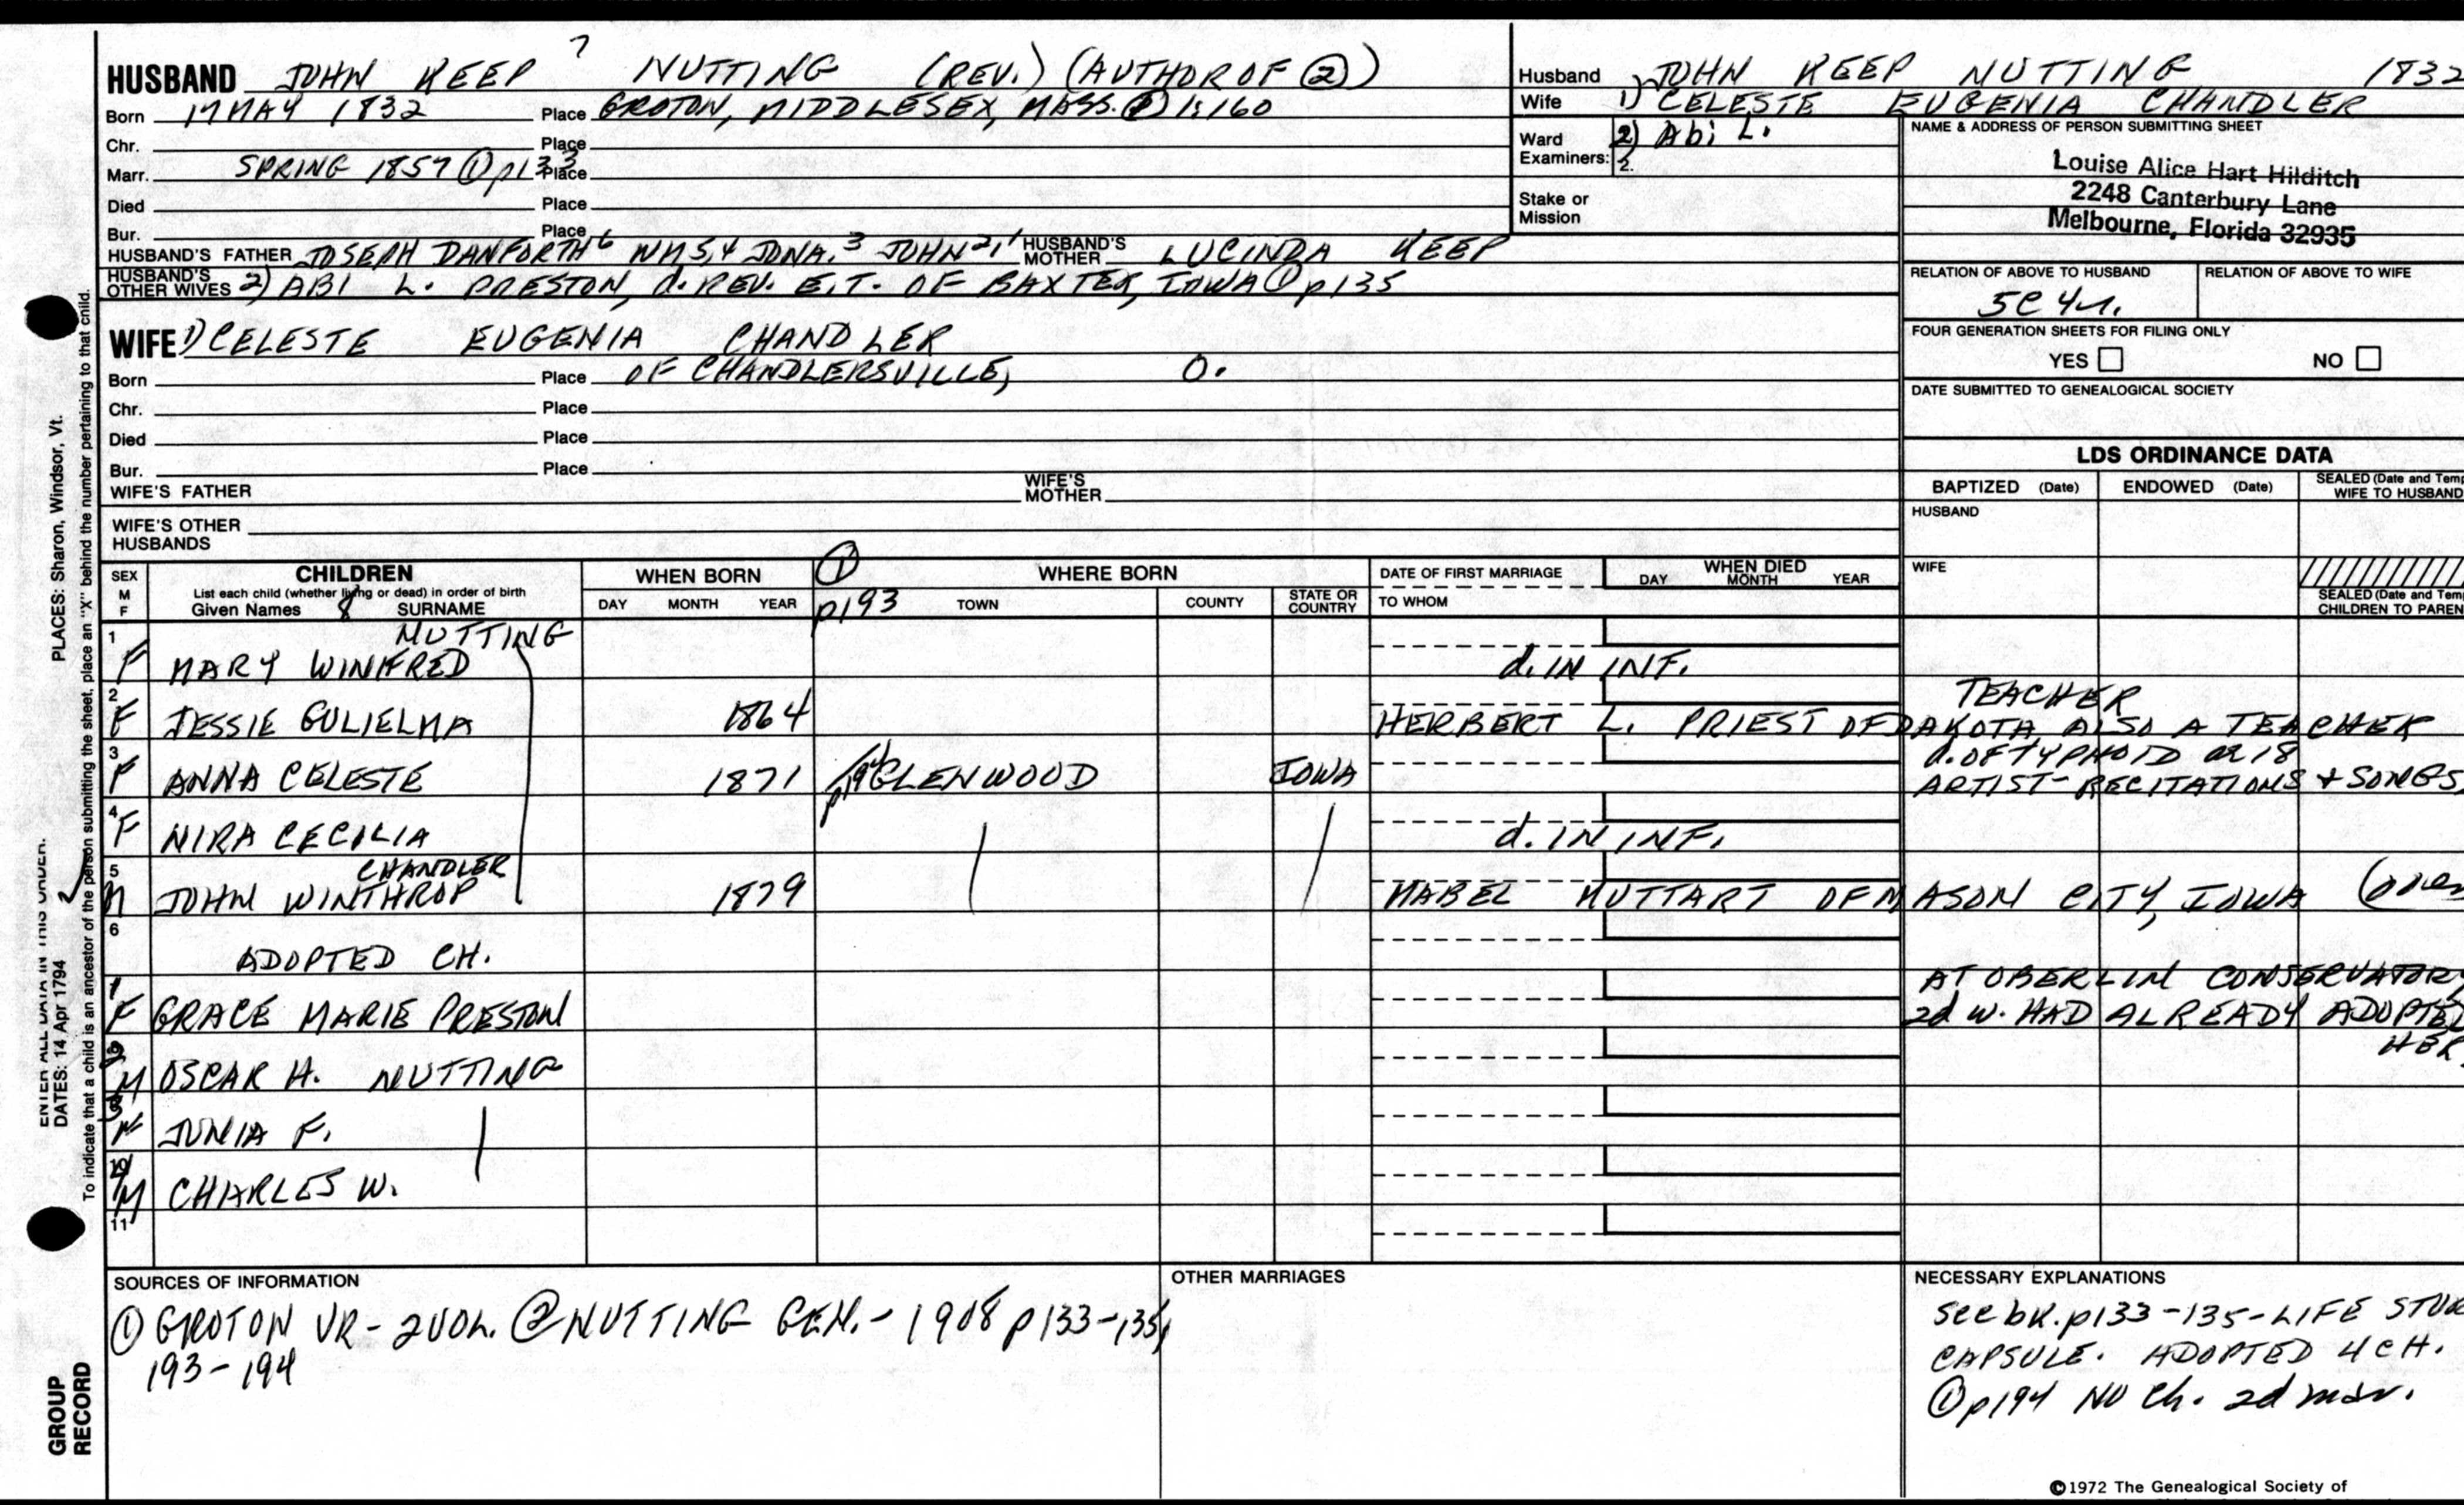 HUSBAND JOHN KEEP 7 NUTTING (REV.) (AUTHOR OF ②)
Born 17 MAY 1832 Place GROTON, MIDDLESEX, MASS. ① 1:160
Chr. Place
Marr. SPRING 1857 ① p133 Place
Died Place
Bur. Place
HUSBAND'S FATHER JOSEPH DANFORTH 6 WM 5,4 JONA. 3 JOHN 2,1 HUSBAND'S MOTHER LUCINDA KEEP
HUSBAND'S OTHER WIVES 2) ABI L. PRESTON, d. REV. E.T. OF BAXTER, IOWA ① p135
WIFE 1) CELESTE EUGENIA CHANDLER
Born Place OF CHANDLERSVILLE, O.
Chr. Place
Died Place
Bur. Place
WIFE'S FATHER WIFE'S MOTHER
WIFE'S OTHER HUSBANDS
Husband JOHN KEEP NUTTING 1832
Wife 1) CELESTE EUGENIA CHANDLER
Ward 2) Abi L.
Examiners: 2.
Stake or Mission
NAME & ADDRESS OF PERSON SUBMITTING SHEET
Louise Alice Hart Hilditch
2248 Canterbury Lane
Melbourne, Florida 32935
RELATION OF ABOVE TO HUSBAND RELATION OF ABOVE TO WIFE
5C 4r.
FOUR GENERATION SHEETS FOR FILING ONLY
YES NO
DATE SUBMITTED TO GENEALOGICAL SOCIETY
LDS ORDINANCE DATA
BAPTIZED (Date) ENDOWED (Date) SEALED (Date and Temp
WIFE TO HUSBAND
HUSBAND
WIFE
SEALED (Date and Temp
CHILDREN TO PAREN
SEX M F CHILDREN WHEN BORN ① WHERE BORN DATE OF FIRST MARRIAGE WHEN DIED
List each child (whether living or dead) in order of birth
Given Names 8 SURNAME DAY MONTH YEAR p193 TOWN COUNTY STATE OR COUNTRY TO WHOM DAY MONTH YEAR
NUTTING
1 F MARY WINIFRED d. IN INF.
TEACHER
2 F JESSIE GULIELMA 1864 HERBERT L. PRIEST OF DAKOTA, ALSO A TEACHER
d. OF TYPHOID ae 18
3 F ANNA CELESTE 1871 p194 GLENWOOD IOWA ARTIST - RECITATIONS & SONGS,
4 F NIRA CECILIA d. IN INF.
CHANDLER
5 M JOHN WINTHROP 1879 MABEL MUTTART OF MASON CITY, IOWA
6 ADOPTED CH.
AT OBERLIN CONSERVATORY
1 F GRACE MARIE PRESTON 2d W. HAD ALREADY ADOPTED
HER
2 M OSCAR H. NUTTING
3 JUNIA F.
10 M CHARLES W.
11
SOURCES OF INFORMATION
① GROTON VR - 2 VOL. ② NUTTING GEN. - 1908 p133-135,
193-194
OTHER MARRIAGES
NECESSARY EXPLANATIONS
See bk. p133-135 - LIFE
CAPSULE. ADOPTED 4 CH.
① p194 NO Ch. 2d mar.
©1972 The Genealogical Society of
PLACES: Sharon, Windsor, Vt.
ENTER ALL DATA IN THIS ORDER:
DATES: 14 Apr 1794
To indicate that a child is an ancestor of the person submitting the sheet, place an "X" behind the number pertaining to that child.
GROUP
RECORD